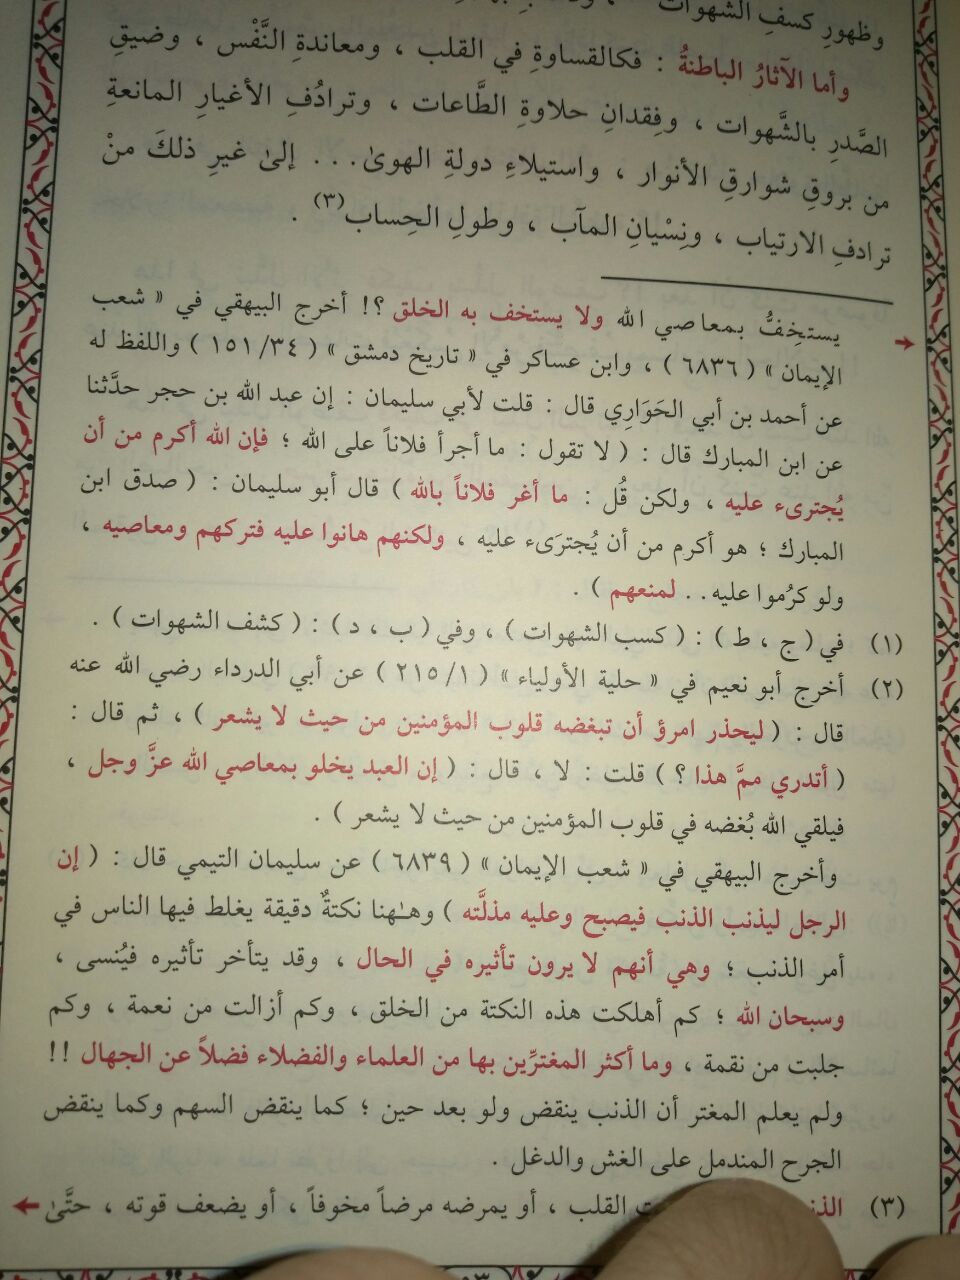 وظهورِ كسفِ الشهوات
وأما الآثارُ الباطنةُ : فكالقساوةِ في القلب ، ومعاندةِ النَّفْس ، وضيقِ
الصَّدرِ بالشَّهوات ، وفِقدانِ حلاوةِ الطَّاعات ، وترادُفِ الأغيارِ المانعةِ
من بروقِ شوارقِ الأنوار ، واستيلاءِ دولةِ الهوىٰ... إلىٰ غيرِ ذلكَ منْ
ترادفِ الارتياب ، ونِسْيانِ المآب ، وطولِ الحِساب(٣) .
يستخِفُّ بمعاصي الله ولا يستخف به الخلق ؟! أخرج البيهقي في « شعب
الإيمان » ( ٦٨٣٦ ) ، وابن عساكر في « تاريخ دمشق » ( ١٥١/٣٤ ) واللفظ له
عن أحمد بن أبي الحَوَارِي قال : قلت لأبي سليمان : إن عبد الله بن حجر حدَّثنا
عن ابن المبارك قال : ( لا تقول : ما أجرأ فلاناً على الله ؛ فإن الله أكرم من أن
يُجترىء عليه ، ولكن قُل : ما أغر فلاناً بالله ) قال أبو سليمان : ( صدق ابن
المبارك ؛ هو أكرم من أن يُجترَىء عليه ، ولكنهم هانوا عليه فتركهم ومعاصيه ،
ولو كرُموا عليه.. لمنعهم ) .
(١) في ( ج ، ط ) : ( كسب الشهوات ) ، وفي ( ب ، د ) : ( كشف الشهوات ) .
(٢) أخرج أبو نعيم في « حلية الأولياء » ( ٢١٥/١ ) عن أبي الدرداء رضي الله عنه
قال : ( ليحذر امرؤ أن تبغضه قلوب المؤمنين من حيث لا يشعر ) ، ثم قال :
( أتدري ممَّ هذا ؟ ) قلت : لا ، قال : ( إن العبد يخلو بمعاصي الله عزَّ وجل ،
فيلقي الله بُغضه في قلوب المؤمنين من حيث لا يشعر ) .
وأخرج البيهقي في « شعب الإيمان » ( ٦٨٣٩ ) عن سليمان التيمي قال : ( إن
الرجل ليذنب الذنب فيصبح وعليه مذلَّته ) وهـٰهنا نكتةٌ دقيقة يغلط فيها الناس في
أمر الذنب ؛ وهي أنهم لا يرون تأثيره في الحال ، وقد يتأخر تأثيره فيُنسى ،
وسبحان الله ؛ كم أهلكت هذه النكتة من الخلق ، وكم أزالت من نعمة ، وكم
جلبت من نقمة ، وما أكثر المغترِّين بها من العلماء والفضلاء فضلاً عن الجهال !!
ولم يعلم المغتر أن الذنب ينقض ولو بعد حين ؛ كما ينقض السهم وكما ينقض
الجرح المندمل على الغش والدغل .
(٣) القلب ، أو يمرضه مرضاً مخوفاً ، أو يضعف قوته ، حتَّىٰ